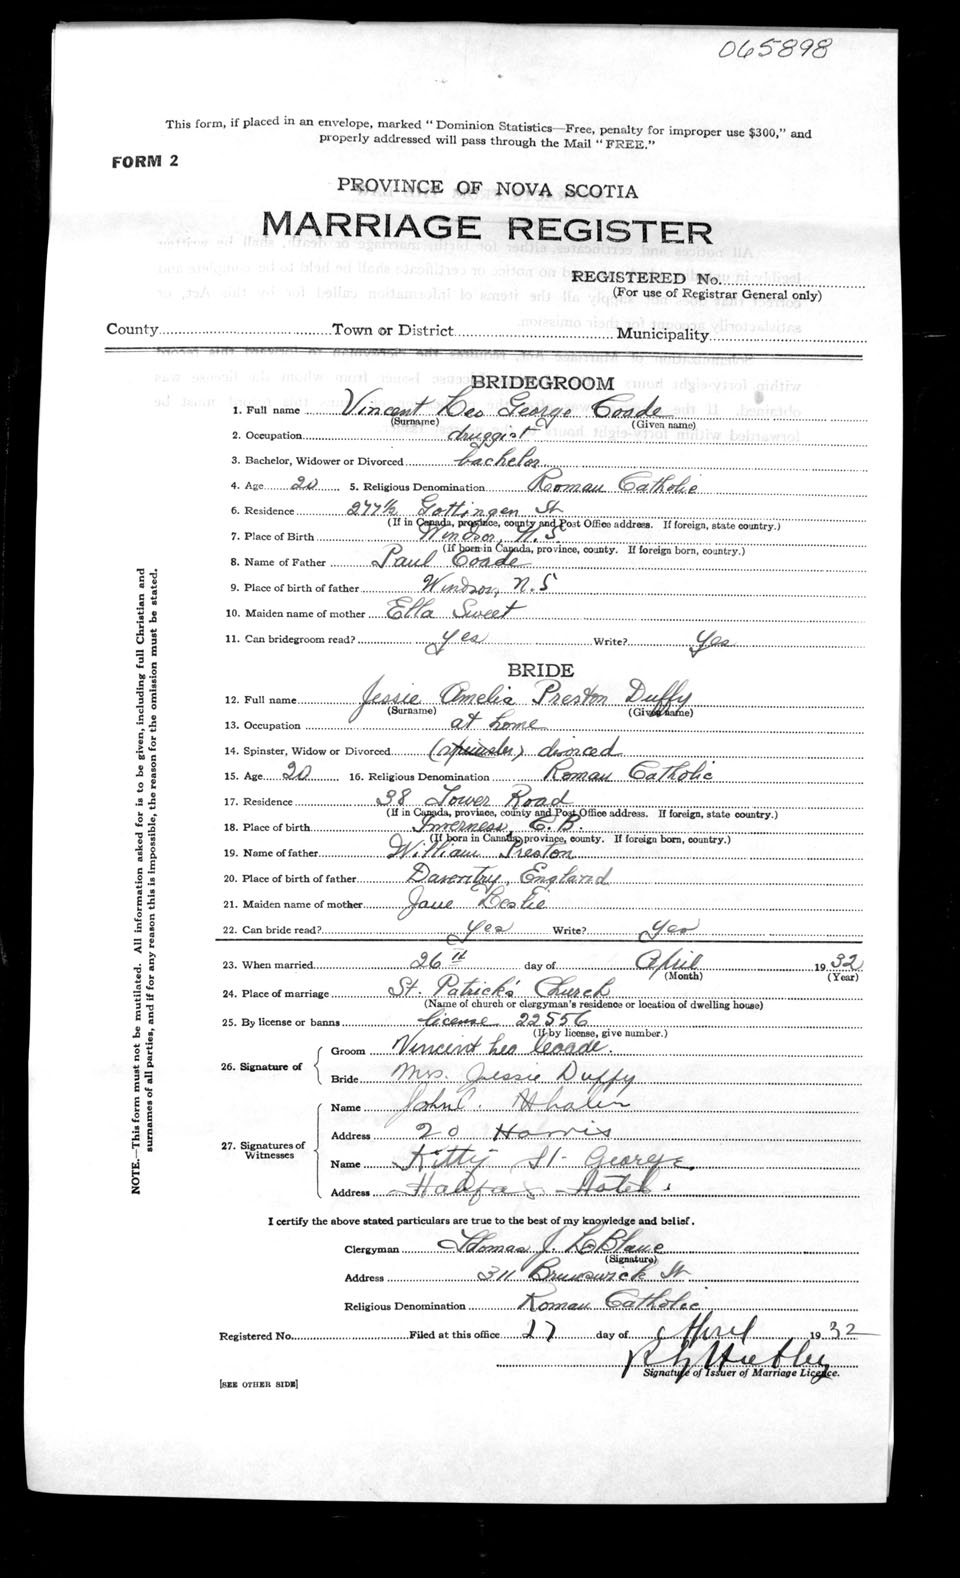 065898
This form, if placed in an envelope, marked "Dominion Statistics—Free, penalty for improper use $300," and
properly addressed will pass through the Mail "FREE."
FORM 2
PROVINCE OF NOVA SCOTIA
MARRIAGE REGISTER
REGISTERED No.
(For use of Registrar General only)
County Town or District Municipality
BRIDEGROOM
1. Full name Vincent Leo George Coade
(Surname) (Given name)
2. Occupation druggist
3. Bachelor, Widower or Divorced bachelor
4. Age 20 5. Religious Denomination Roman Catholic
6. Residence 277½ Gottingen St
(If in Canada, province, county and Post Office address. If foreign, state country.)
7. Place of Birth Windsor, N.S.
(If born in Canada, province, county. If foreign born, country.)
8. Name of Father Paul Coade
9. Place of birth of father Windsor, N.S
10. Maiden name of mother Ella Sweet
11. Can bridegroom read? yes Write? Yes
BRIDE
12. Full name Jessie Amelia Preston Duffy
(Surname) (Given name)
13. Occupation at home
14. Spinster, Widow or Divorced (spinster) divorced
15. Age 20 16. Religious Denomination Roman Catholic
17. Residence 38 Tower Road
(If in Canada, province, county and Post Office address. If foreign, state country.)
18. Place of birth Inverness, C.B.
(If born in Canada, province, county. If foreign born, country.)
19. Name of father William Preston
20. Place of birth of father Daventry, England
21. Maiden name of mother Jane Leslie
22. Can bride read? Yes Write? Yes
23. When married 26th day of April 1932
(Month) (Year)
24. Place of marriage St. Patrick's Church
(Name of church or clergyman's residence or location of dwelling house)
25. By license or banns license 22556
(If by license, give number.)
26. Signature of
Groom Vincent Leo Coade.
Bride Mrs. Jessie Duffy
27. Signatures of Witnesses
Name John C. Whalen
Address 20 Harris
Name Kitty St. George
Address Halifax Hotel.
I certify the above stated particulars are true to the best of my knowledge and belief.
Clergyman Thomas J. LeBlanc
(Signature)
Address 311 Brunswick St
Religious Denomination Roman Catholic
Registered No. Filed at this office 27 day of April 1932
Signature of Issuer of Marriage Licence.
[SEE OTHER SIDE]
NOTE.—This form must not be mutilated. All information asked for is to be given, including full Christian and
surnames of all parties, and if for any reason this is impossible, the reason for the omission must be stated.